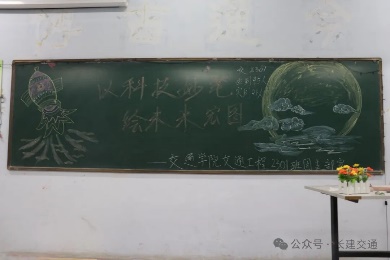 以科技之光
绘未来宏图
——交通学院交通工程2301班团支部
公众号·长建交通